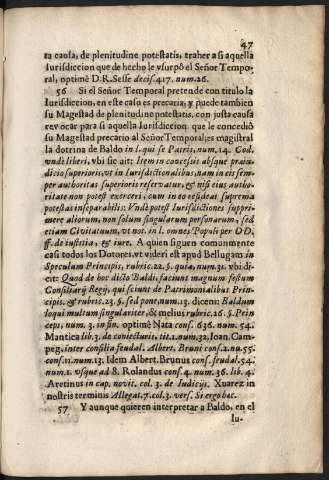 47
ta causa, de plenitudine potestatis, traher a si aquella
Iurisdiccion que de hecho le vsurpò el Señor Tempo-
ral, optimè D.R. Sesse decis. 417. num. 26.
56 Si el Señor Temporal pretende con titulo la
Iurisdiccion, en este caso es precaria, y puede tambien
su Magestad de plenitudine potestatis, con justa causa
revocar para si aquella Iurisdiccion que le concediò
su Magestad precario al Señor Temporal; es magistral
la dotrina de Baldo in l. qui se Patris, num. 14. Cod.
vndè liberi, vbi sic ait: Item in concessis absque praeiu-
dicio superioris, vt in Iurisdictionalibus, nam in eis sem-
per authoritas superioris reservatur, & nisi eius autho-
ritate non potest exerceri, cum in eo resideat suprema
potestas inseparabilis: Vndè potest Iurisdictiones suppri-
mere aliorum, non solum singularum personarum, sed
etiam Civitatuum, vt not. in l. omnes Populi per DD.
ff. de iustitia, & iure. A quien siguen comunmente
casi todos los Dotores, vt videri est apud Bellugam in
Speculum Principis, rubric. 22. §. quia, num. 31. vbi di-
cit: Quod de hoc dicto Baldi, faciunt magnum festum
Consiliarij Regij, qui sciunt de Patrimonialibus Prin-
cipis, & rubric. 23. §. sed pone, num. 13. dicens: Baldum
loqui multum singulariter, & melius rubric. 26. §. Prin
ceps, num. 3. in fin. optimè Nata cons. 636. num. 54.
Mantica lib. 3. de coniecturis, tit. 1. num. 32. Ioan. Cam-
peg. inter consilia feudal. Albert. Bruni cons. 2. nu. 55.
cons. 11. num. 13. Idem Albert. Brunus cons. feudal. 54.
num. 1. vsque ad 8. Rolandus cons. 4. num. 36. lib. 4.
Aretinus in cap. novit. col. 3. de Iudicijs. Xuarez in
nostris terminis Allegat. 7. col. 3. vers. Si ergo hac.
57 Y aunque quieren interpretar a Baldo, en el
Iu-